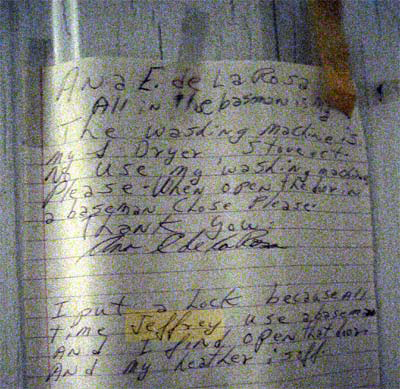 Ana E. de La Rosa
All in the basman is my
The washing machine is
my & Dryer Stove ect.
Not use my washing machine
Please - When open the dor in
a baseman Close Please.
Thank you.
Ana E de la Rosa
I put a Lock because All
time Jeffrey use a baseman
And I find open that door
And my heather is off.